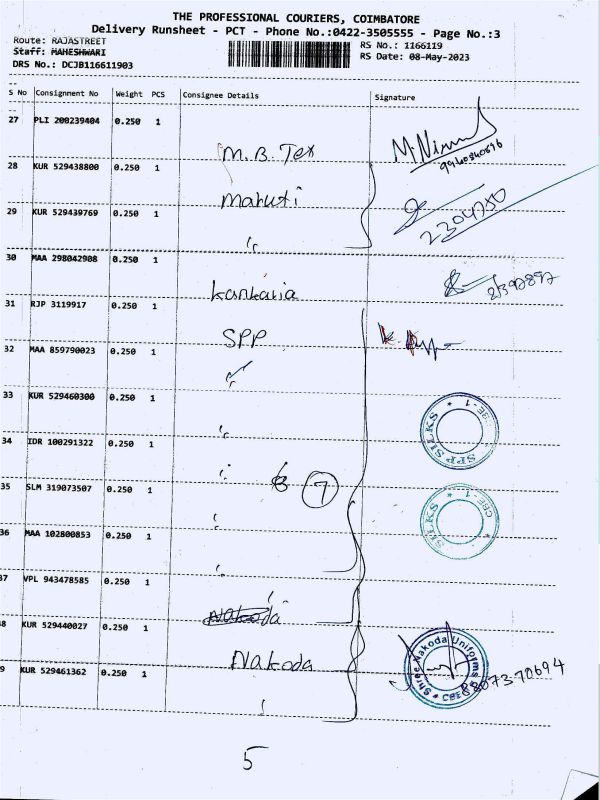 THE PROFESSIONAL COURIERS, COIMBATORE
Delivery Runsheet - PCT - Phone No.:0422-3505555 - Page No.:3
Route: RAJASTREET
RS No.: 1166119
Staff: MAHESHWARI
RS Date: 08-May-2023
DRS No.: DCJB116611903
S No Consignment No Weight PCS Consignee Details Signature
27 PLI 200239404 0.250 1
M.B. Tex
28 KUR 529438800 0.250 1
Maruti
2304750
29 KUR 529439769 0.250 1
30 MAA 298042908 0.250 1
Kankaria
31 RJP 3119917 0.250 1
SPP
32 MAA 859790023 0.250 1
33 KUR 529460300 0.250 1
SPP SILKS * CBE-1 *
34 IDR 100291322 0.250 1
7
35 SLM 319073507 0.250 1
SILKS * CBE-1 *
36 MAA 102800853 0.250 1
37 VPL 943478585 0.250 1
Nakoda
8 KUR 529440027 0.250 1
Nakoda
Shree Nakoda Uniforms
9 KUR 529461362 0.250 1
5